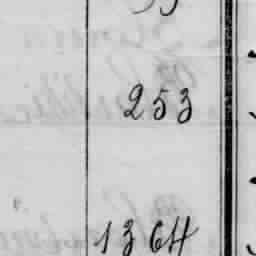 253
1364